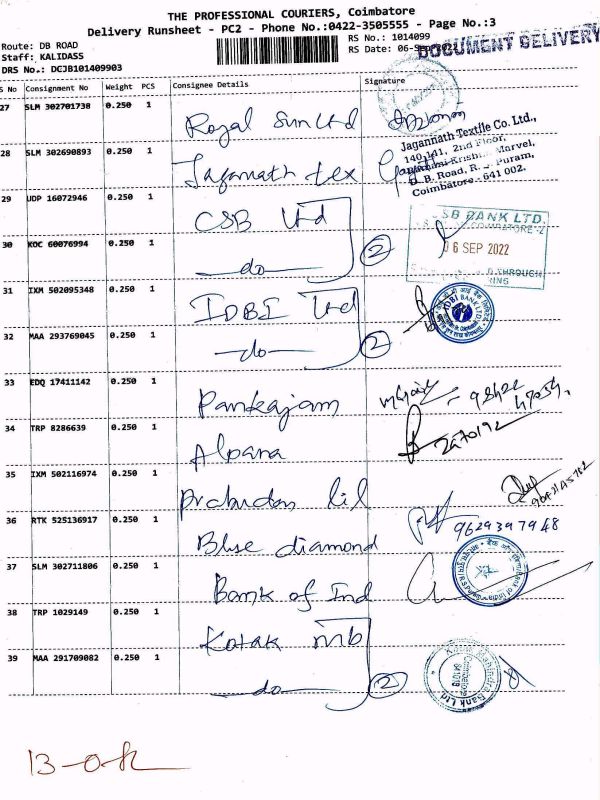 THE PROFESSIONAL COURIERS, Coimbatore
Delivery Runsheet - PC2 - Phone No.:0422-3505555 - Page No.:3
Route: DB ROAD
Staff: KALIDASS
DRS No.: DCJB101409903
RS No.: 1014099
RS Date: 06-Sep
DOCUMENT DELIVERY
S No Consignment No Weight PCS Consignee Details Signature
27 SLM 302701738 0.250 1 Royal Sun Ltd
28 SLM 302690893 0.250 1 Jagannath tex
Jagannath Textile Co. Ltd.,
140-141, 2nd Floor,
Krishna Marvel,
D. B. Road, R. S. Puram,
Coimbatore - 641 002.
29 UDP 16072946 0.250 1 CSB Ltd
30 KOC 60076994 0.250 1 -do- 2
SB BANK LTD.
COIMBATORE-2
6 SEP 2022
THROUGH
31 IXM 502095348 0.250 1 IDBI Ltd
IDBI BANK LTD
32 MAA 293769045 0.250 1 -do- 2
33 EDQ 17411142 0.250 1 Pankajam
34 TRP 8286639 0.250 1 Alpana
35 IXM 502116974 0.250 1
36 RTK 525136917 0.250 1 Blue diamond 9629397948
37 SLM 302711806 0.250 1 Bank of Ind
38 TRP 1029149 0.250 1 Kotak mb
39 MAA 291709082 0.250 1 -do- 2
Kotak Mahindra Bank Ltd
Coimbatore
641018
13-ok